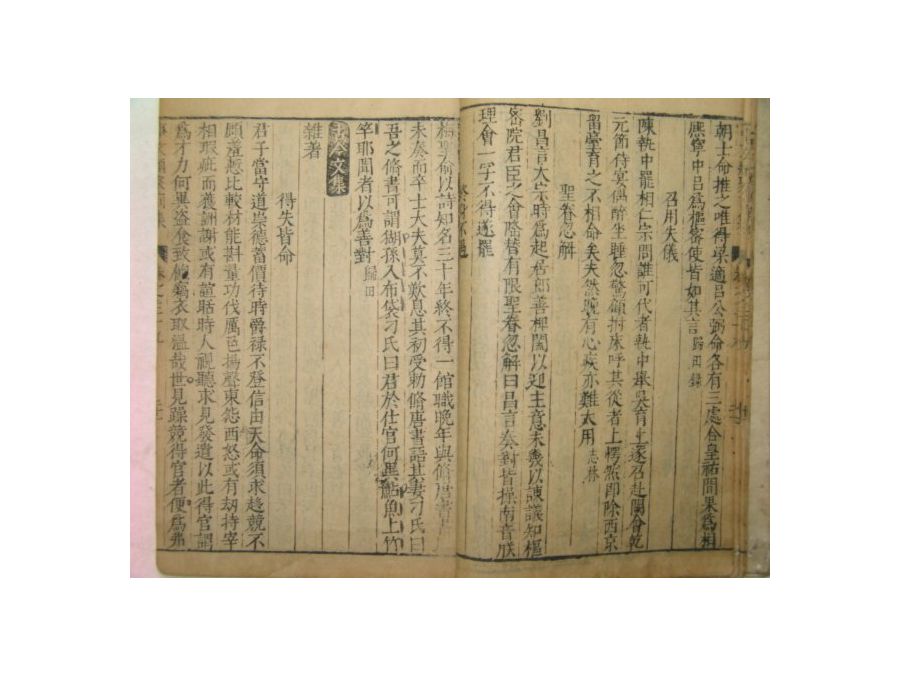 朝士命推之唯得梁適呂公弼命各有三處合皇祐間果為相
熈寧中呂為樞密使皆如其言歸田錄
召用失儀
陳執中罷相仁宗問誰可代者執中舉吳育上遂召赴闕會乾
元節侍宴偶醉坐睡忽驚顧拊床呼其從者上愕然即除西京
留臺育之不相命矣夫然晚有心疾亦難大用志林
聖眷忽解
劉昌言太宗時為起居郎善捭闔以迎主意未幾以諫議知樞
密院君臣之會隆替有限聖眷忽解曰昌言奏對皆操南音朕
理會一字不得遂罷
梅聖俞以詩知名三十年終不得一館職晚年與脩唐書
未奏而卒士大夫莫不歎息其初受勑脩唐書語其妻刁氏曰
吾之脩書可謂猢孫入布袋刁氏曰君於仕官何異鮎魚上竹
竿耶聞者以為善對歸田
古今文集
雜著
得失皆命
君子當守道崇德蓄價待時爵祿不登信由天命須求趍競不
顧羞慙比較材能斟量功伐厲色揚聲東怨西怒或有刼持宰
相瑕疵而獲詶謝或有諠聒時人視聽求見發遣以此得官謂
為才力何異盜食致飽竊衣取溫哉世見躁競得官者便為弗